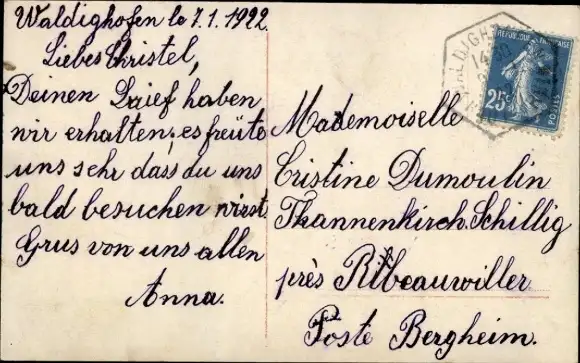 Waldighofen le 7.1.1922
Liebes Christel,
Deinen Brief haben
wir erhalten, es freüte
uns sehr dass du uns
bald besuchen wirst
Grus von uns allen
Anna.
REPUBLIQUE FRANÇAISE
25c
POSTES
Mademoiselle
Cristine Dumoulin
Thannenkirch. Schillig
près Ribeauwiller
Poste Bergheim.